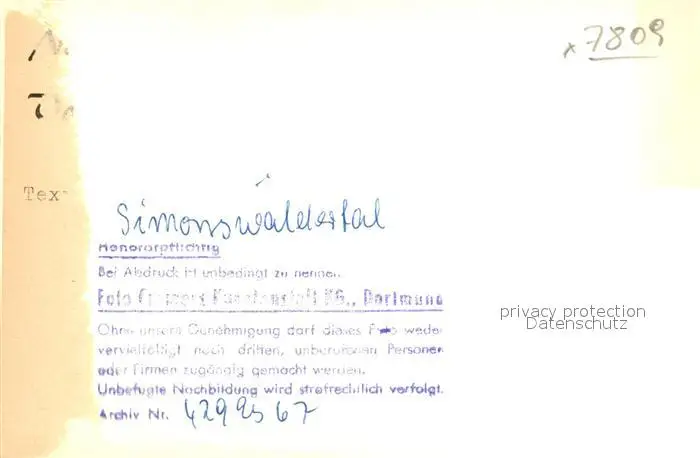 x 7809
Tex
Simonswäldertal
Honorarpflichtig
Bei Abdruck ist unbedingt zu nennen.
Foto Cramers Kunstanstalt KG., Dortmund
Ohne unsere Genehmigung darf dieses Foto weder
vervielfältigt noch dritten, unberufenen Personen
oder Firmen zugängig gemacht werden.
Unbefugte Nachbildung wird strafrechtlich verfolgt.
Archiv Nr. 67
privacy protection
Datenschutz